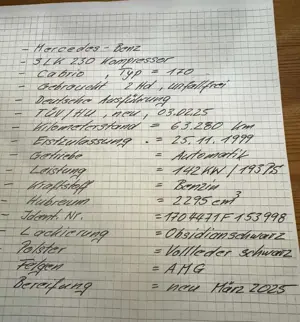 - Mercedes-Benz
- SLK 230 Kompressor
- Cabrio, Typ = 170
- Gebraucht 2 Hd, unfallfrei
- Deutsche Ausführung
- TÜV/HU, neu, 03.0225
- Kilometerstand = 63.280 Km
- Erstzulassung. = 25.11.1999
- Getriebe = Automatik
- Leistung = 142 KW / 193 PS
- Kraftstoff = Benzin
- Hubraum = 2295 cm³
- Ident. Nr. = 1704471F153998
- Lackierung = Obsidianschwarz
- Polster = Vollleder schwarz
- Felgen = AMG
- Bereifung = neu März 2025